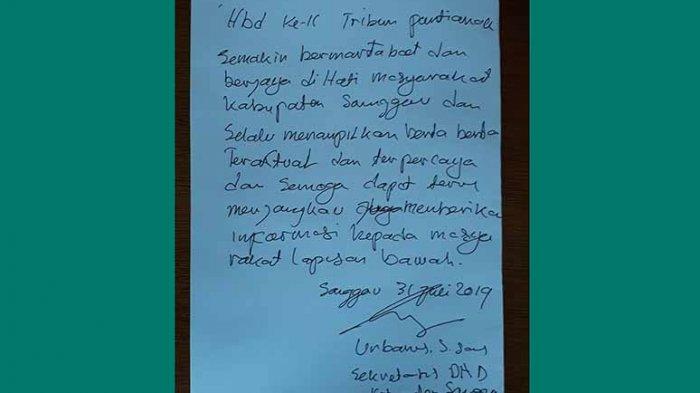 Hbd Ke-11 Tribun pontianak
Semakin bermartabat dan
berjaya di Hati masyarakat
Kabupaten Sanggau dan
Selalu menampilkan berita berita
Teraktual dan terpercaya
dan Semoga dapat terus
menjangkau memberikan
informasi kepada masya
rakat lapisan bawah.
Sanggau 31 Juli 2019
Urbanus. S.
Sekretaris DAD